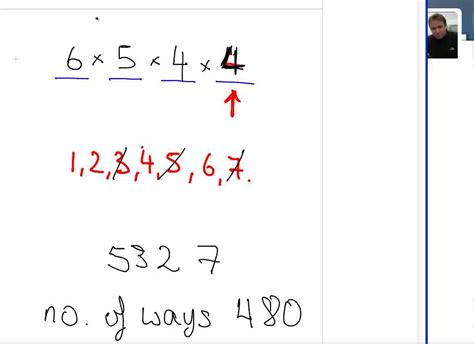 6 × 5 × 4 × 4
1, 2, 3, 4, 5, 6, 7.
532 7
no. of ways 480